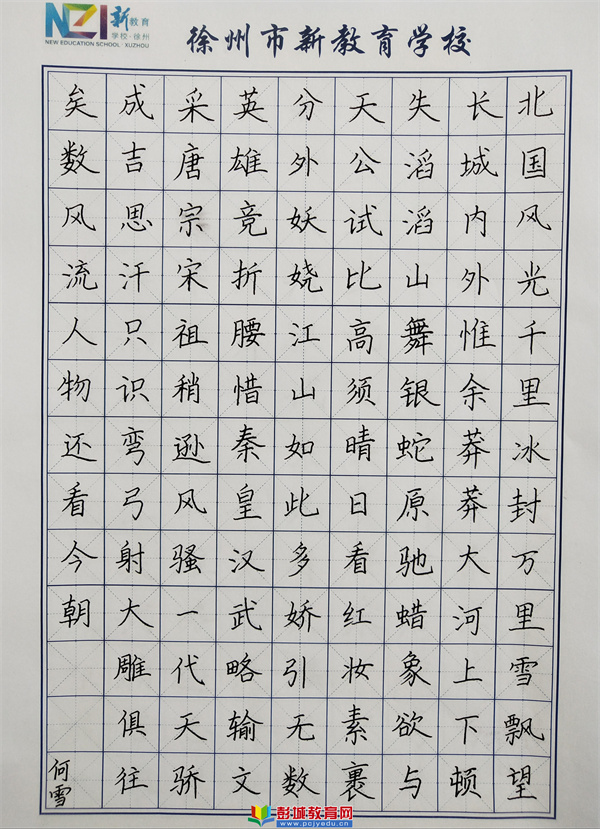 NZI 新教育
学校·徐州
NEW EDUCATION SCHOOL · XUZHOU
徐州市新教育学校
北国风光千里冰封万里雪飘望
长城内外惟余莽莽大河上下顿
失滔滔山舞银蛇原驰蜡象欲与
天公试比高须晴日看红妆素裹
分外妖娆江山如此多娇引无数
英雄竞折腰惜秦皇汉武略输文
采唐宗宋祖稍逊风骚一代天骄
成吉思汗只识弯弓射大雕俱往
矣数风流人物还看今朝
何雪
彭城教育网
www.pcjyedu.cn